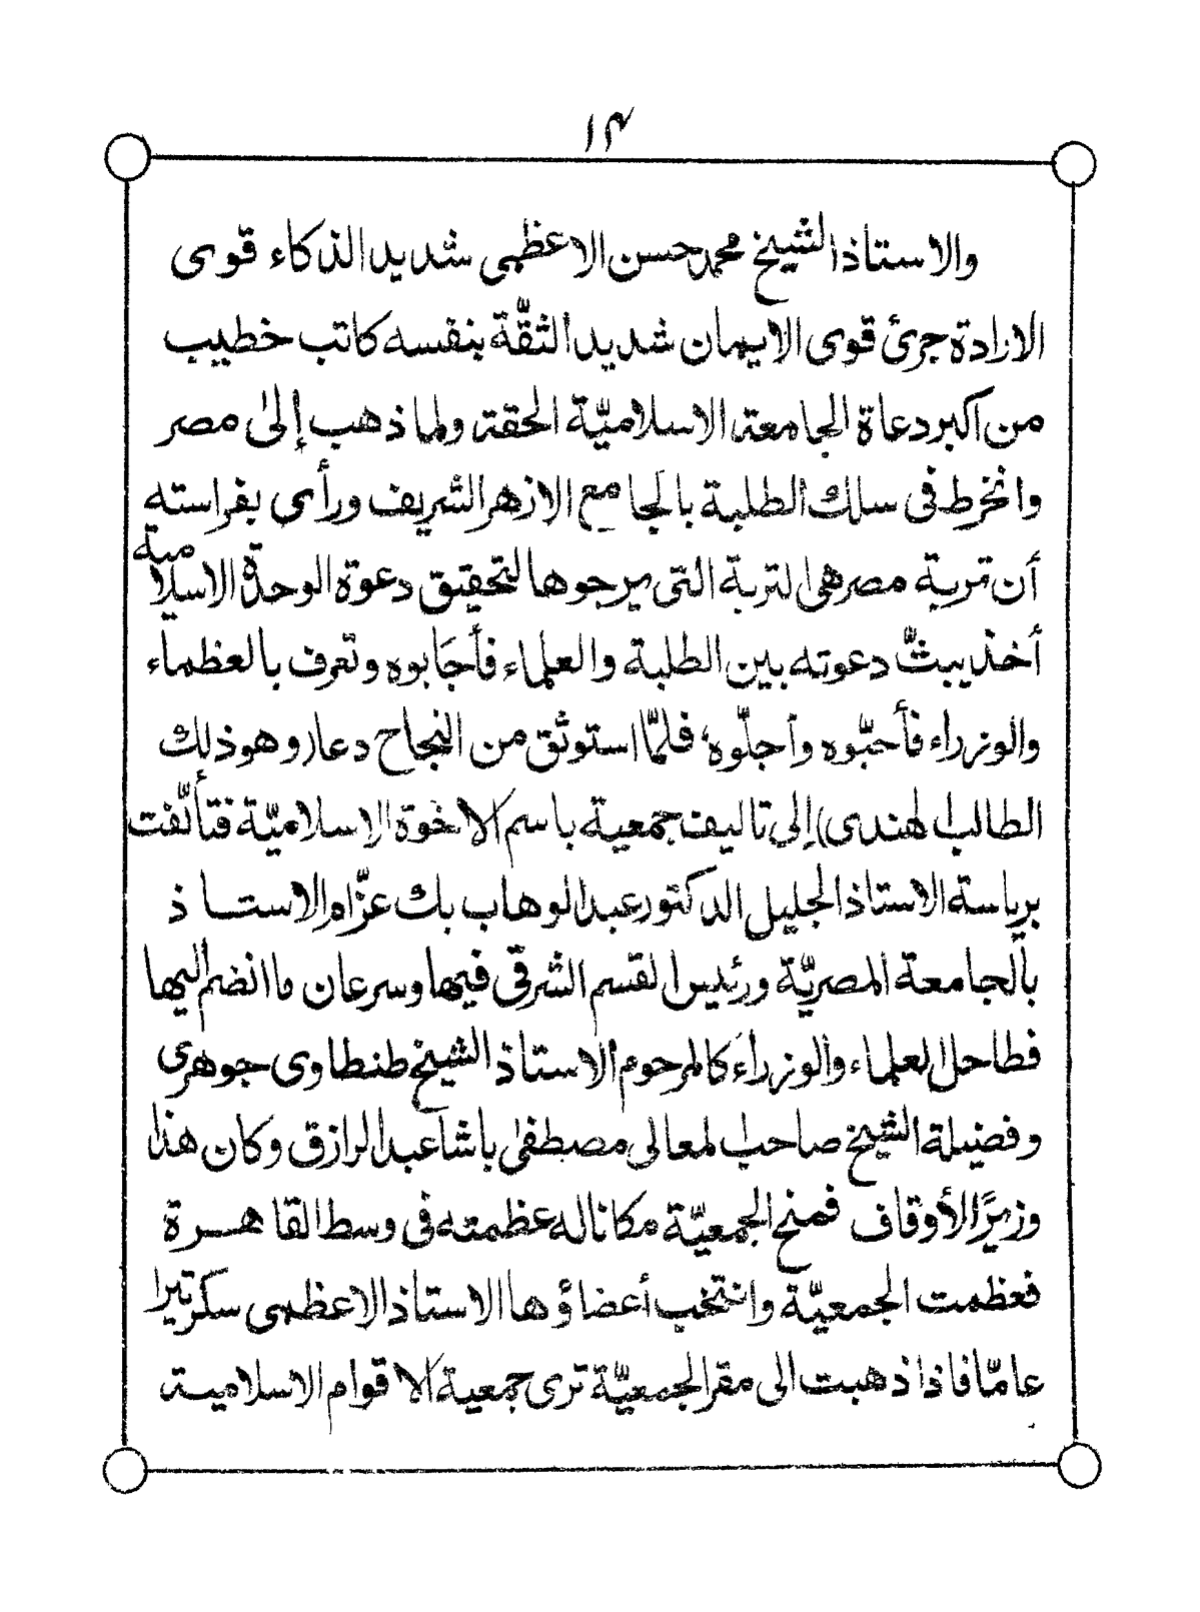 ١٣
والاستاذ الشيخ محمد حسن الاعظمى شديد الذكاء قوى
الارادة جرئ قوى الايمان شديد الثقّة بنفسه كاتب خطيب
من اكبر دعاة الجامعة الاسلاميّة الحقة ولما ذهب إلىٰ مصر
وانخرط فى سلك الطلبة بالجامع الازهر الشريف ورأى بفراسته
أن تربة مصر هى التربة التى يرجوها لتحقيق دعوة الوحدة الاسلامية
أخذ يبثّ دعوته بين الطلبة والعلماء فأجابوه وتعرف بالعظماء
والوزراء فأحبّوه وأجلّوه، فلمّا استوثق من النجاح دعا (وهو ذلك
الطالب الهندى) إلى تاليف جمعية باسم الاخوة الاسلاميّة فتألّفت
برياسة الاستاذ الجليل الدكتور عبدالوهاب بك عزّام الاستاذ
بالجامعة المصريّة ورئيس القسم الشرقى فيها وسرعان ما انضم اليها
فطاحل العلماء والوزراء كالمرحوم الاستاذ الشيخ طنطاوى جوهرى
وفضيلة الشيخ صاحب المعالى مصطفىٰ باشا عبدالرازق وكان هذا
وزيرًا الأوقاف فمنح الجمعيّة مكانا له عظمته فى وسط القاهرة
فعظمت الجمعيّة وانتخب أعضاؤها الاستاذ الاعظمى سكرتيرا
عامّا فاذا ذهبت الى مقر الجمعيّة ترى جمعية الاقوام الاسلامية